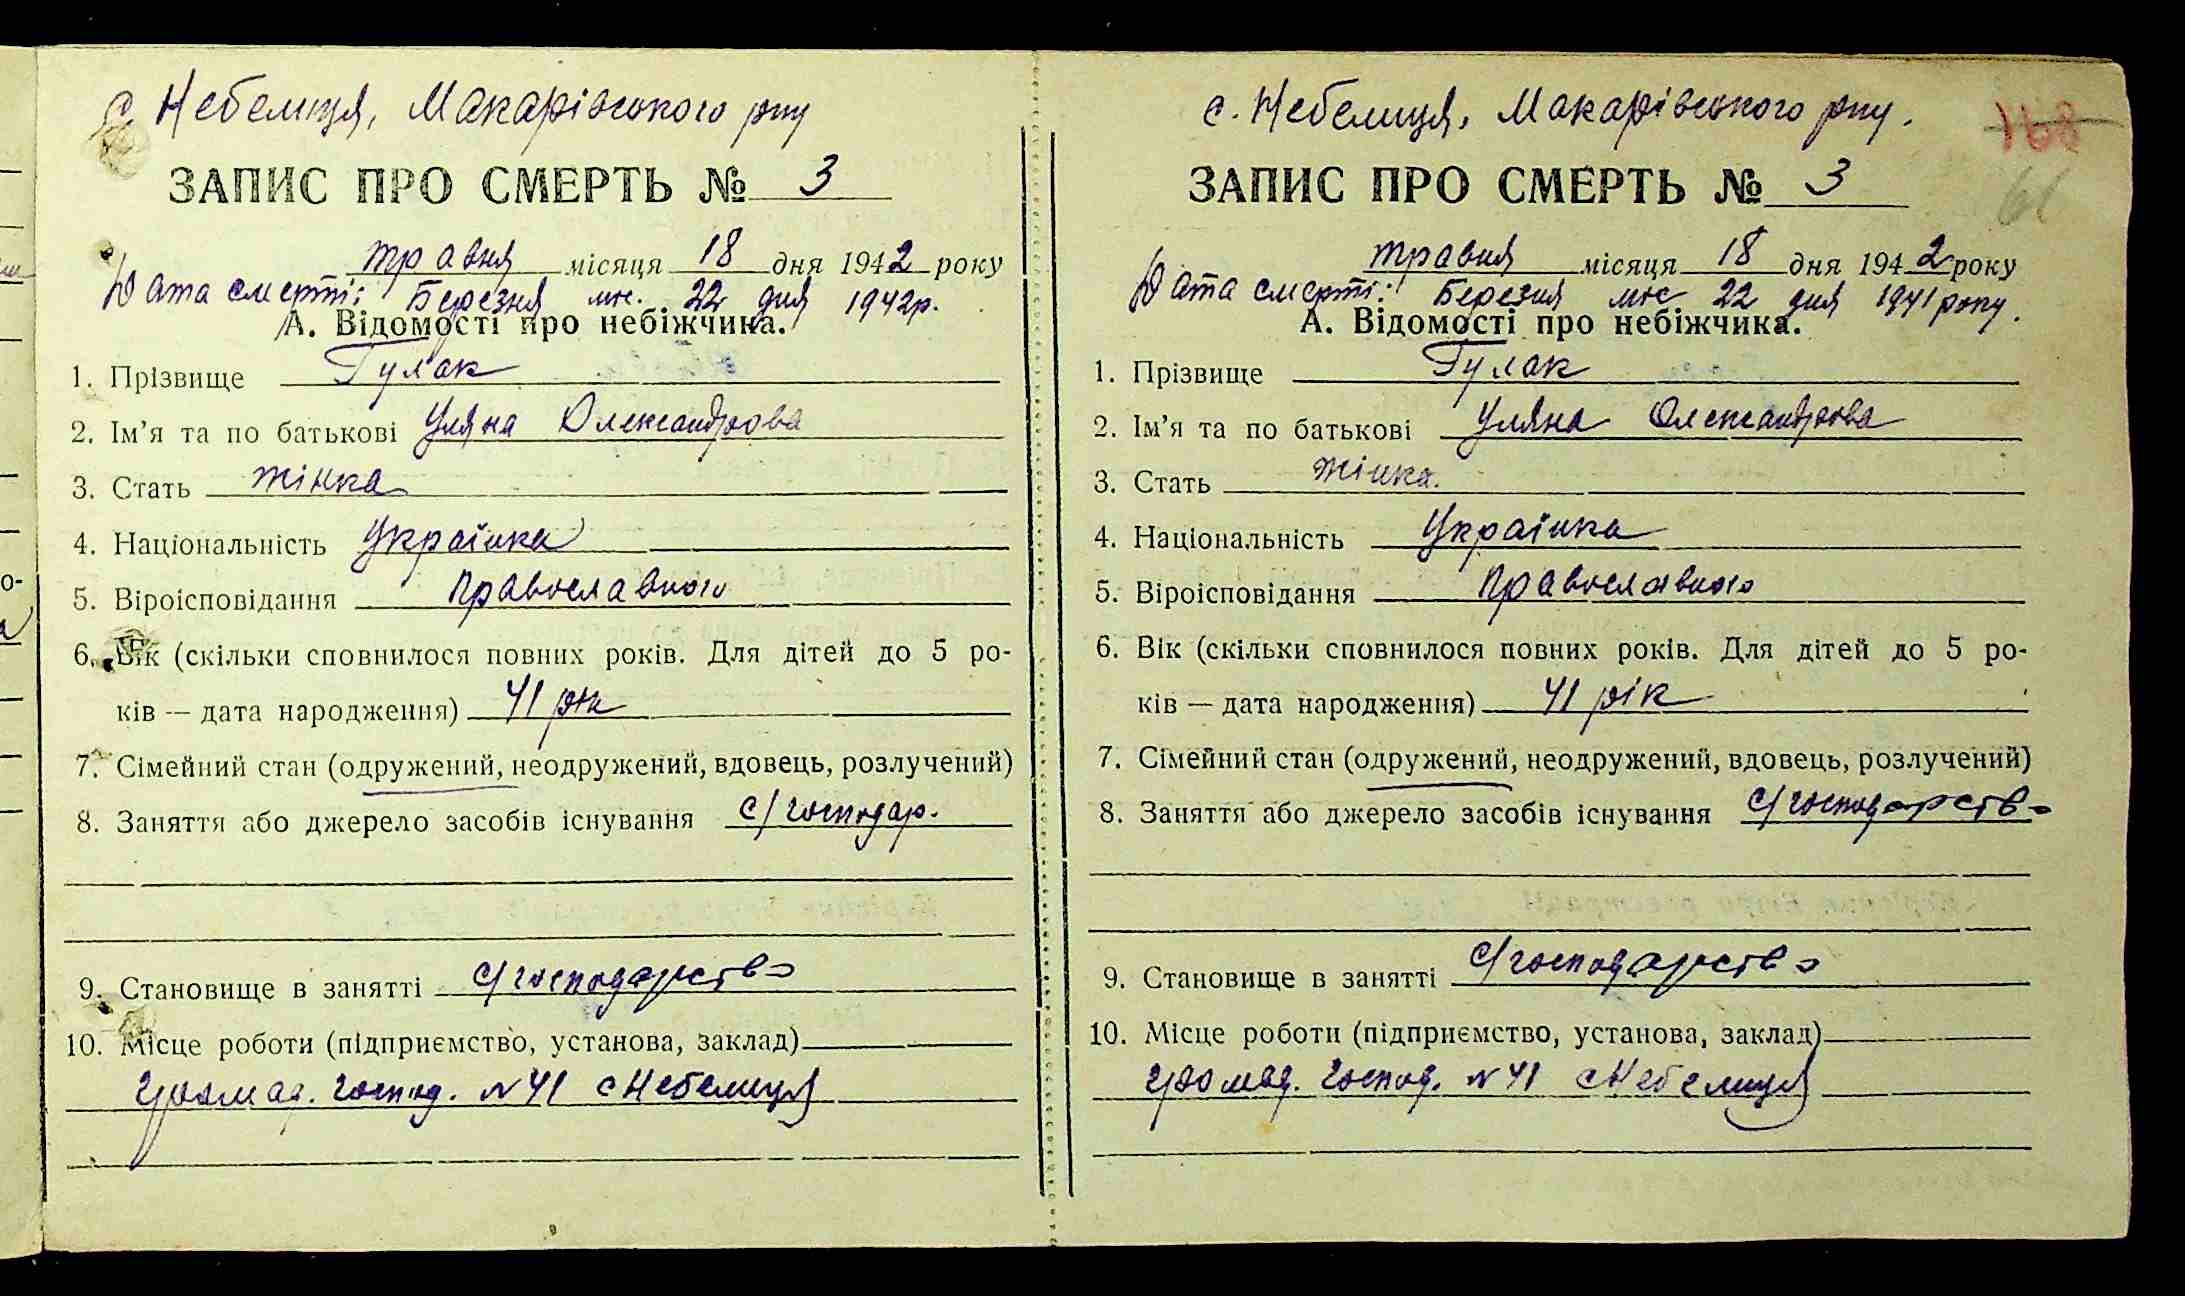 с. Небелиця, Макарівського р-ну
ЗАПИС ПРО СМЕРТЬ № 3
травня місяця 18 дня 1942 року
Дата смерті: Березня міс. 22 дня 1942 р.
А. Відомості про небіжчика.
1. Прізвище Гулак
2. Ім'я та по батькові Уляна Олександрова
3. Стать жінка
4. Національність Українка
5. Віроісповідання православного
6. Вік (скільки сповнилося повних років. Для дітей до 5 ро-
ків — дата народження) 41 рік
7. Сімейний стан (одружений, неодружений, вдовець, розлучений)
8. Заняття або джерело засобів існування с/господар.
9. Становище в занятті с/господарство
10. Місце роботи (підприємство, установа, заклад)
громад. господ. N 41 с Небелиця
с. Небелиця, Макарівського р-ну.
168
61
ЗАПИС ПРО СМЕРТЬ № 3
травня місяця 18 дня 1942 року
Дата смерті: Березня міс 22 дня 1941 року.
А. Відомості про небіжчика.
1. Прізвище Гулак
2. Ім'я та по батькові Уляна Олександрова
3. Стать жінка.
4. Національність Українка
5. Віроісповідання православного
6. Вік (скільки сповнилося повних років. Для дітей до 5 ро-
ків — дата народження) 41 рік
7. Сімейний стан (одружений, неодружений, вдовець, розлучений)
8. Заняття або джерело засобів існування с/господарство
9. Становище в занятті с/господарство
10. Місце роботи (підприємство, установа, заклад)
громад. господ. N 41 с Небелиця